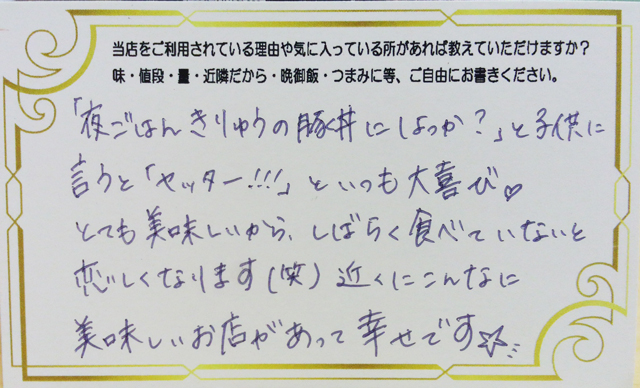 当店をご利用されている理由や気に入っている所があれば教えていただけますか？
味・値段・量・近隣だから・晩御飯・つまみに等、ご自由にお書きください。
「夜ごはんきりゅうの豚丼にしよっか？」と子供に
言うと「ヤッター!!!」といつも大喜び♡
とても美味しいから、しばらく食べていないと
恋しくなります(笑) 近くにこんなに
美味しいお店があって幸せです☆